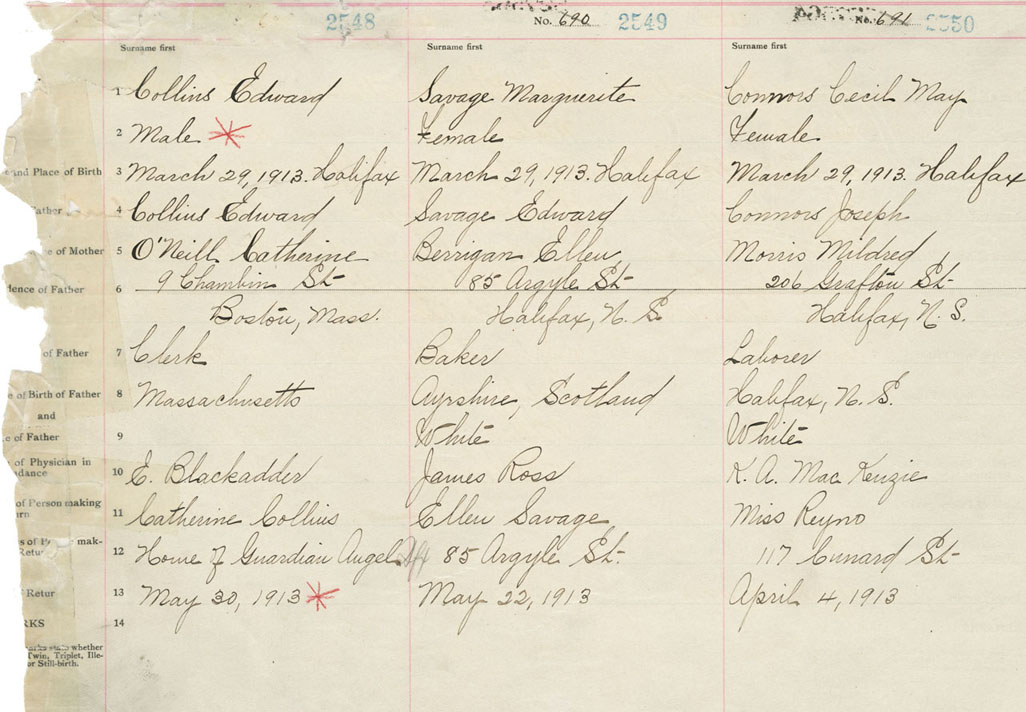 2548
No. 690 2549
No. 691 2550
Surname first Surname first Surname first
1 Collins Edward Savage Marguerite Connors Cecil May
2 Male Female Female
and Place of Birth 3 March 29, 1913. Halifax March 29, 1913. Halifax March 29, 1913. Halifax
Father 4 Collins Edward Savage Edward Connors Joseph
e of Mother 5 O'Neill Catherine Berrigan Ellen Morris Mildred
dence of Father 6 9 St 85 Argyle St 206 Grafton St
Boston, Mass. Halifax, N. S. Halifax, N. S.
of Father 7 Clerk Baker Laborer
e of Birth of Father 8 Massachusetts Ayrshire, Scotland Halifax, N. S.
and
e of Father 9 White White
of Physician in 10 E. Blackadder James Ross K. A. Mac Kenzie
dance
of Person making 11 Catherine Collins Ellen Savage Miss Reyno
urn
s of mak- 12 Home of Guardian Angel 85 Argyle St. 117 Cunard St
Retu
Retur 13 May 30, 1913 May 22, 1913 April 4, 1913
RKS 14
whether
Twin, Triplet, Ille-
or Still-birth.